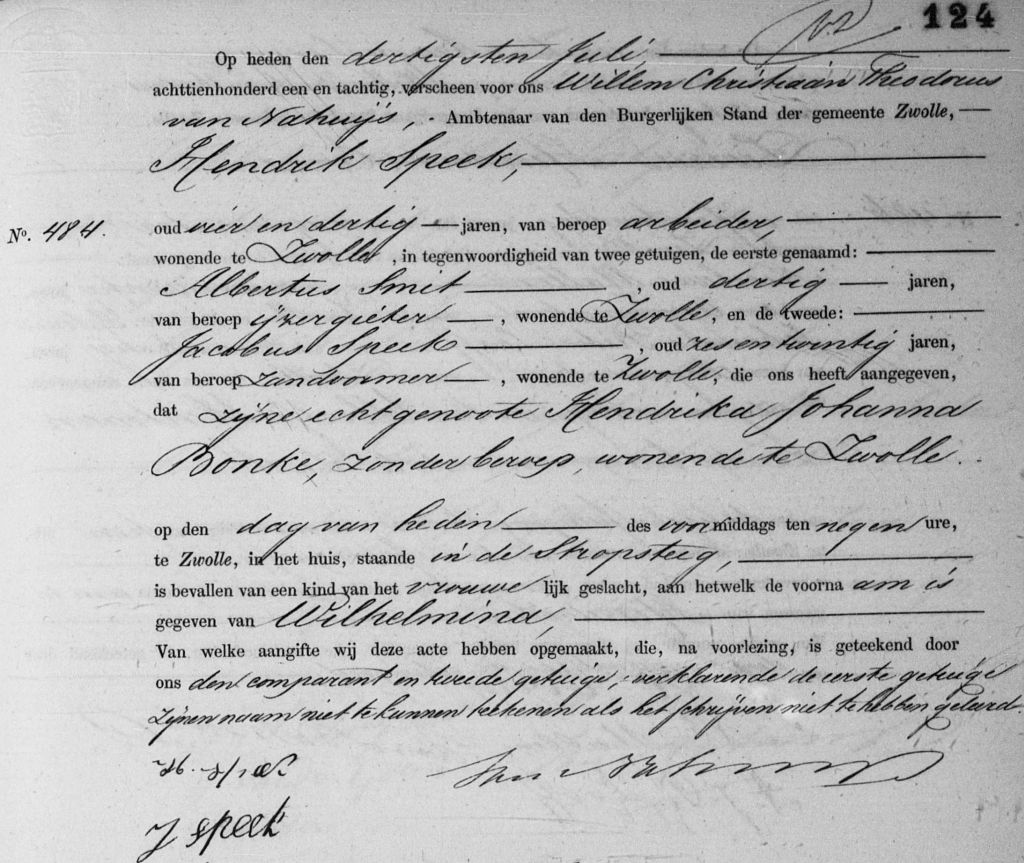 124
Op heden den dertigsten Juli
achttienhonderd een en tachtig, verscheen voor ons Willem Christiaan Theodorus
van Nahuijs, - Ambtenaar van den Burgerlijken Stand der gemeente Zwolle,
Hendrik Speek,
No. 484. oud vier en dertig jaren, van beroep arbeider,
wonende te Zwolle, in tegenwoordigheid van twee getuigen, de eerste genaamd:
Albertus Smit, oud dertig jaren,
van beroep ijzergieter, wonende te Zwolle, en de tweede:
Jacobus Speek, oud zes en twintig jaren,
van beroep zandvormer, wonende te Zwolle, die ons heeft aangegeven,
dat zijne echtgenoote Hendrika Johanna
Bonke, zonder beroep, wonende te Zwolle.
op den dag van heden des voormiddags ten negen ure,
te Zwolle, in het huis, staande in de Stropsteeg,
is bevallen van een kind van het vrouwelijk geslacht, aan hetwelk de voornaam is
gegeven van Wilhelmina,
Van welke aangifte wij deze acte hebben opgemaakt, die, na voorlezing, is geteekend door
ons den comparant en tweede getuige, verklarende de eerste getuige
zijnen naam niet te kunnen teekenen als het schrijven niet te hebben geleerd.
J Speek